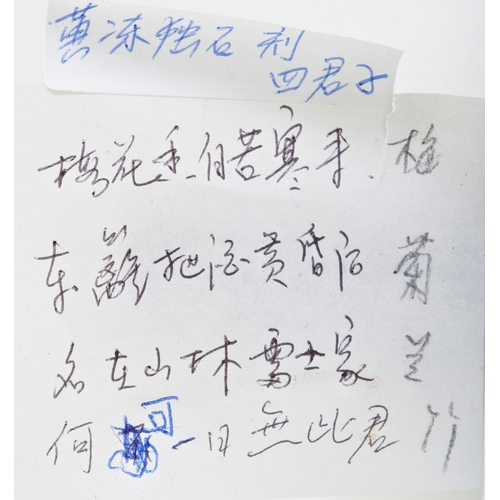 黄冻独石 刻
四君子
梅花香自苦寒来 梅
东篱把酒黄昏后 菊
名在山林处士家 兰
何可一日無此君 竹